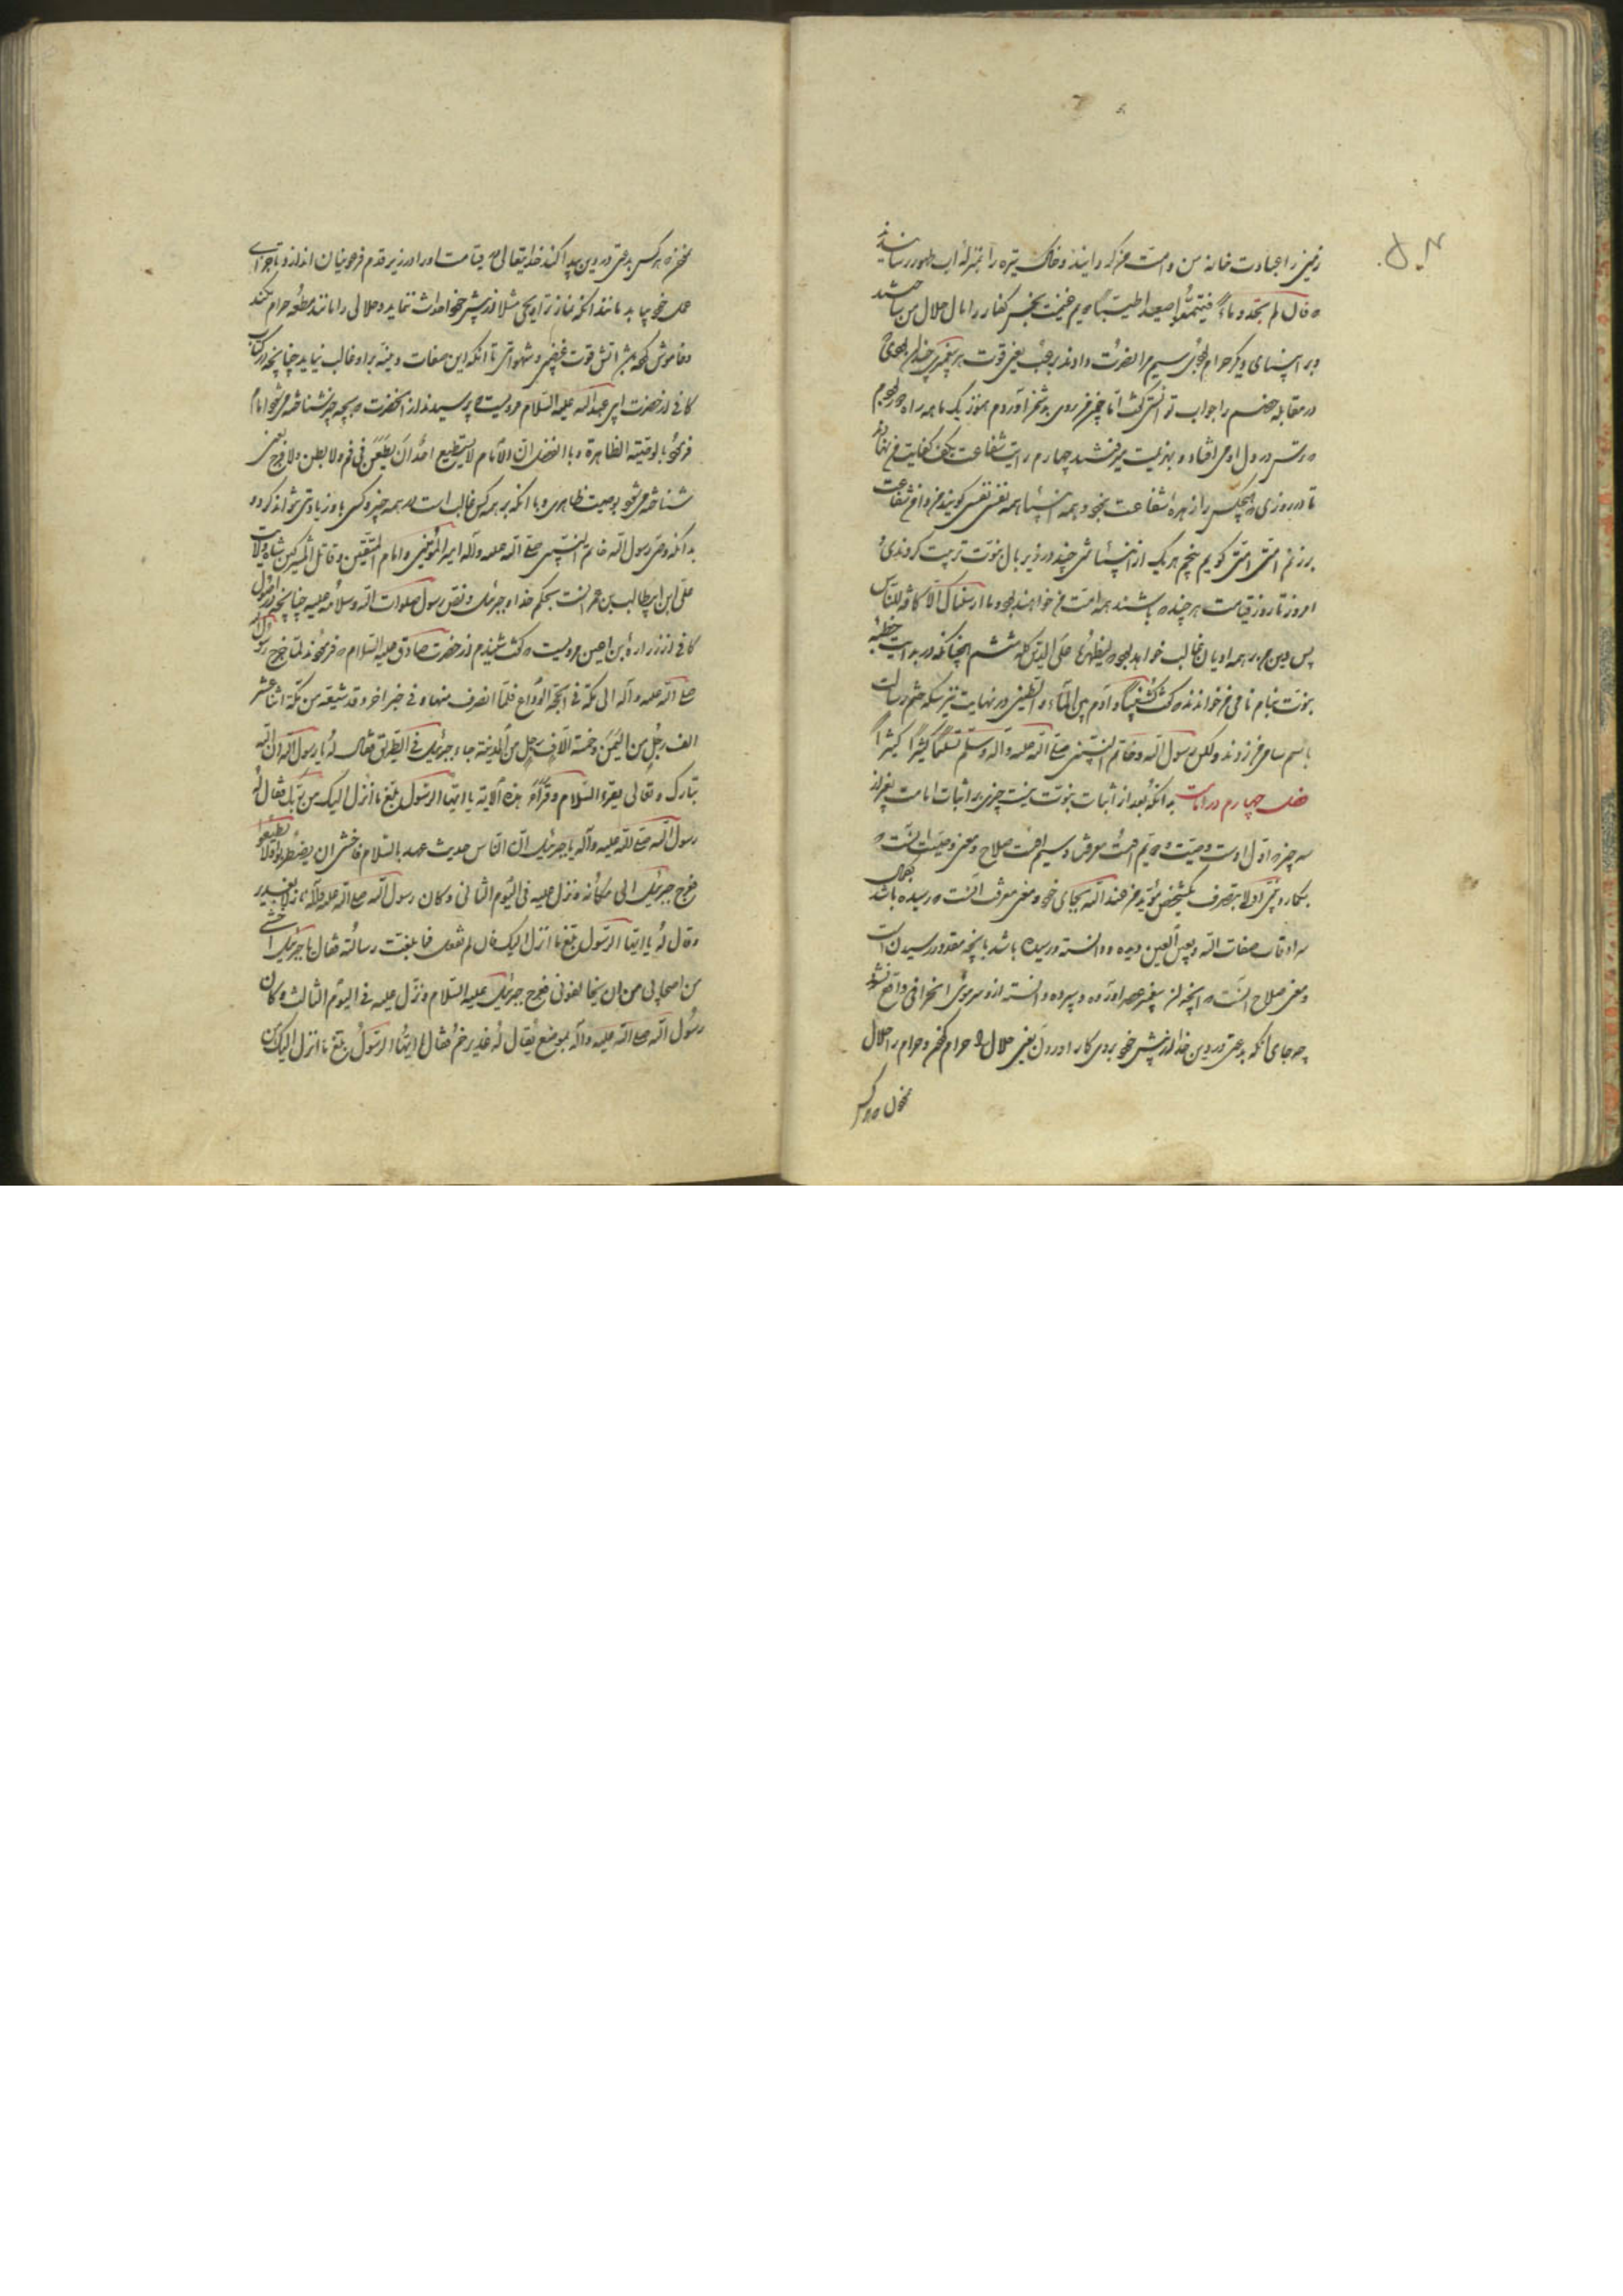 زمین را عبادت خانه من و امت من گردانیدند و خاک تیره را بمنزلهٔ اب طهور رسانیدند
فان لم تجدوا ماءً فتیمموا صعیدا طیبا دویم غنیمت نجس کفار را با مال حلال من ساختند
و بر انبیای دیگر حرام بود سیم مرا نصرت دادند برعب یعنی قوت هر پیغمبری چندان بودی که
در مقابله خصم را جواب توانستی گفت اما چون من روی بدشمن آوردم هنوز یک ماهه راه بودم
که ترس در دل او می افتاد و بهزیمت میرفتند چهارم رایت شفاعت بکف کفایت من نهادند
تا در روزی که هیچکس را زهرهٔ شفاعت نبود و همه انبیا همه نفسی نفسی گویند من دافع شفاعت
برزنم امتی امتی گویم پنجم هر یک از انبیا مشتی چند در زیر بال نبوت تربیت کردندی
امروز تا روز قیامت هر چند که باشند همه امت من خواهند بود و ما ارسلناک الا کافة للناس
پس دین من بر همه ادیان غالب خواهد بود لیظهره علی الدین کله ششم همچنانکه در بدایت خطبه
نبوت بنام نامی من خواندند که کنت نبیا و آدم بین الماء و الطین در نهایت نیز سکه ختم رسالت
باسم سامی من زدند و لکن رسول الله و خاتم النبیین صلی الله علیه و آله و سلم تسلیما کثیرا کثیرا
فصل چهارم در امامت بدانکه بعد از اثبات نبوت نیست چیزی بر اثبات امامت بغیر از
سه چیز اول اوست وصیت دویم است معرفت و سیم است صلاح و معنی وصیت انست که
سرادقات صفات الله و بعین العین دیده و دانسته و رسیده باشد بانچه مقدور رسیدن است
و معنی صلاح انست که انچه از پیغمبر عصر اورده و سپرده و دانسته ازو سر موئی انحرافی واقع نشود
چه جای انکه بدعتی در دین خدا از پیش خود بروی کار اوردن یعنی حلال را حرام کنم و حرام را حلال
نکنم که هر کس
نکنم که هر کس بدعتی در دین پیدا کند خدایتعالی در قیامت او را در زیر قدم فرعونیان اندازد تا جزای
عمل خود بیابد مانند انکه نماز تراویحی مثلا از پیش خود احداث نماید و حلالی را مانند متعه حرام بکند
و خاموش کند اتش قوت غضبی و شهوانی تا انکه این صفات دمیمه بر او غالب نیاید چنانچه در کتاب
کافی از حضرت ابی عبدالله علیه السلام مرویست که پرسیدند از انحضرت که بچه چیز شناخته میشود امام
فرمود بالوصیة الظاهرة و بالفضل ان الامام لا یستطیع احد ان یطعن فی فم و لا بطن و لا فرج یعنی
شناخته میشود بوصیت ظاهری و بانکه بر همه کس غالب است در همه چیز و کسی باو زیادتی نتواند کرد و
بدانکه وصی رسول الله خاتم النبیین صلی الله علیه و آله امیر المؤمنین و امام المتقین و قاتل المشرکین شاه ولایت
علی ابن ابیطالب بن عمرانست بحکم خدا و جبرئیل و نص رسول صلوات الله و سلامه علیه چنانچه در اصول
کافی از زرارة بن اعین مرویست که گفت شنیدم از حضرت صادق علیه السلام که فرمودند لما خرج رسول الله
صلی الله علیه و آله الی مکة فی حجة الوداع فلما انصرف منها و فی خبر اخر و قد شیعه من مکة اثنا عشر
الف رجل من الیمن و خمسة الاف رجل من المدینة جاءه جبرئیل فی الطریق فقال له یا رسول الله ان الله
تبارک و تعالی یقرء السلام و قرأ هذه الآیة یا ایها الرسول بلغ ما انزل الیک من ربک فقال له
رسول الله صلی الله علیه و آله یا جبرئیل ان الناس حدیث عهد بالاسلام فاخشی ان یضطربوا و لا یطیعوا
فعرج جبرئیل الی مکانه و نزل علیه فی الیوم الثانی و کان رسول الله صلی الله علیه و آله نازلا بغدیر
و قال له یا ایها الرسول بلغ ما انزل الیک فان لم تفعل فما بلغت رسالته فقال یا جبرئیل اخشی
من اصحابی من ان یخالفونی فعرج جبرئیل علیه السلام و نزل علیه فی الیوم الثالث و کان
رسول الله صلی الله علیه و آله بموضع یقال له غدیر خم فقال یا ایها الرسول بلغ ما انزل الیک من